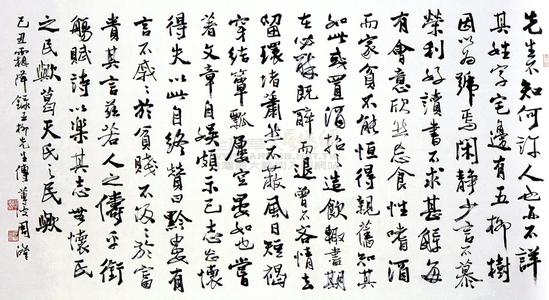 先生不知何許人也亦不詳
其姓字宅邊有五柳樹
因以為號焉閑静少言不慕
榮利好讀書不求甚解每
有會意欣然忘食性嗜酒
而家貧不能恒得親舊知其
如此或置酒招之造飲輒盡期
在必醉既醉而退曾不吝情去
留環堵蕭然不蔽風日短褐
穿結簞瓢屢空晏如也嘗
著文章自娛頗示己志忘懷
得失以此自終贊曰黔婁有
言不戚戚於貧賤不汲汲於富
貴其言茲若人之儔乎銜
觴賦詩以樂其志無懷氏
之民歟葛天氏之民歟
己丑霜降錄五柳先生傳